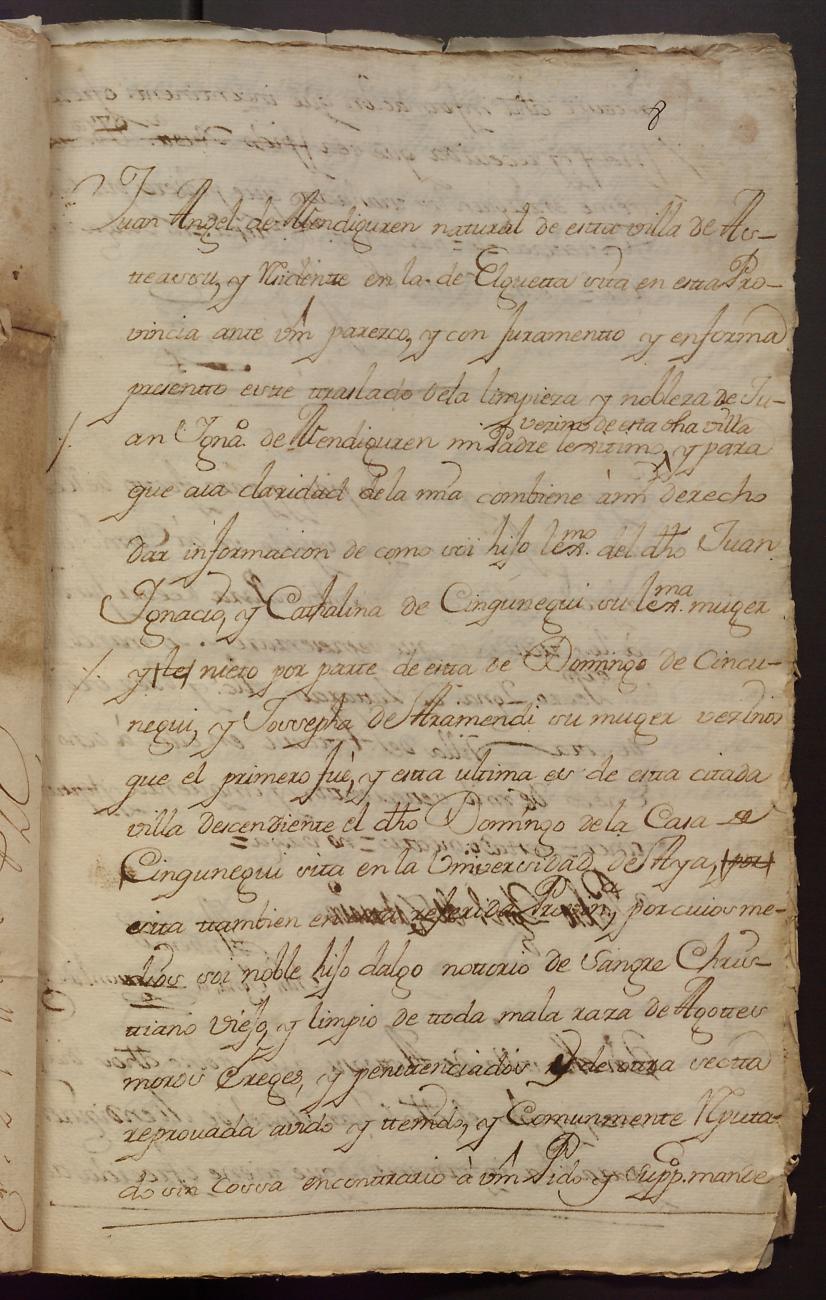 8
Juan Angel de Mendiguren natural de esta villa de As-
teassu, y Residente en la de Elguetta sita en esta Pro-
vincia ante Vm parezco, y con Juramentto y enforma
presentto este traslado dela limpieza y nobleza de Ju-
y vezino de esta dha villa
an Ignaº. de Mendiguren mi Padre lexitimo, y para
que aia claridad dela mia combiene à mi derecho
dar informacion de como soi hijo lexmo. del dho Juan
Ignacio, y Cathalina de Cingunegui su lexma. muger
y nieto por parte de esta de Domingo de Cincu-
negui, y Jossepha de Aramendi su muger vezinos
que el primero fué, y esta ultima es de esta citada
villa Descendiente el dho Domingo de la Casa de
Cingunegui sita en la Universidad de Aya,
sita ttambien en esta referida Provinª, por cuios me-
dios soi noble hijo dalgo nottorio de Sangre Chris-
ttiano viejo, y limpio de ttoda mala raza de Agottes
moros Ereges, y penitenciados y de otra sectta
reprovada avido y ttenido, y Comunmente Reputa-
do sin cossa encontrario à Vm Pido y Suppco. mande